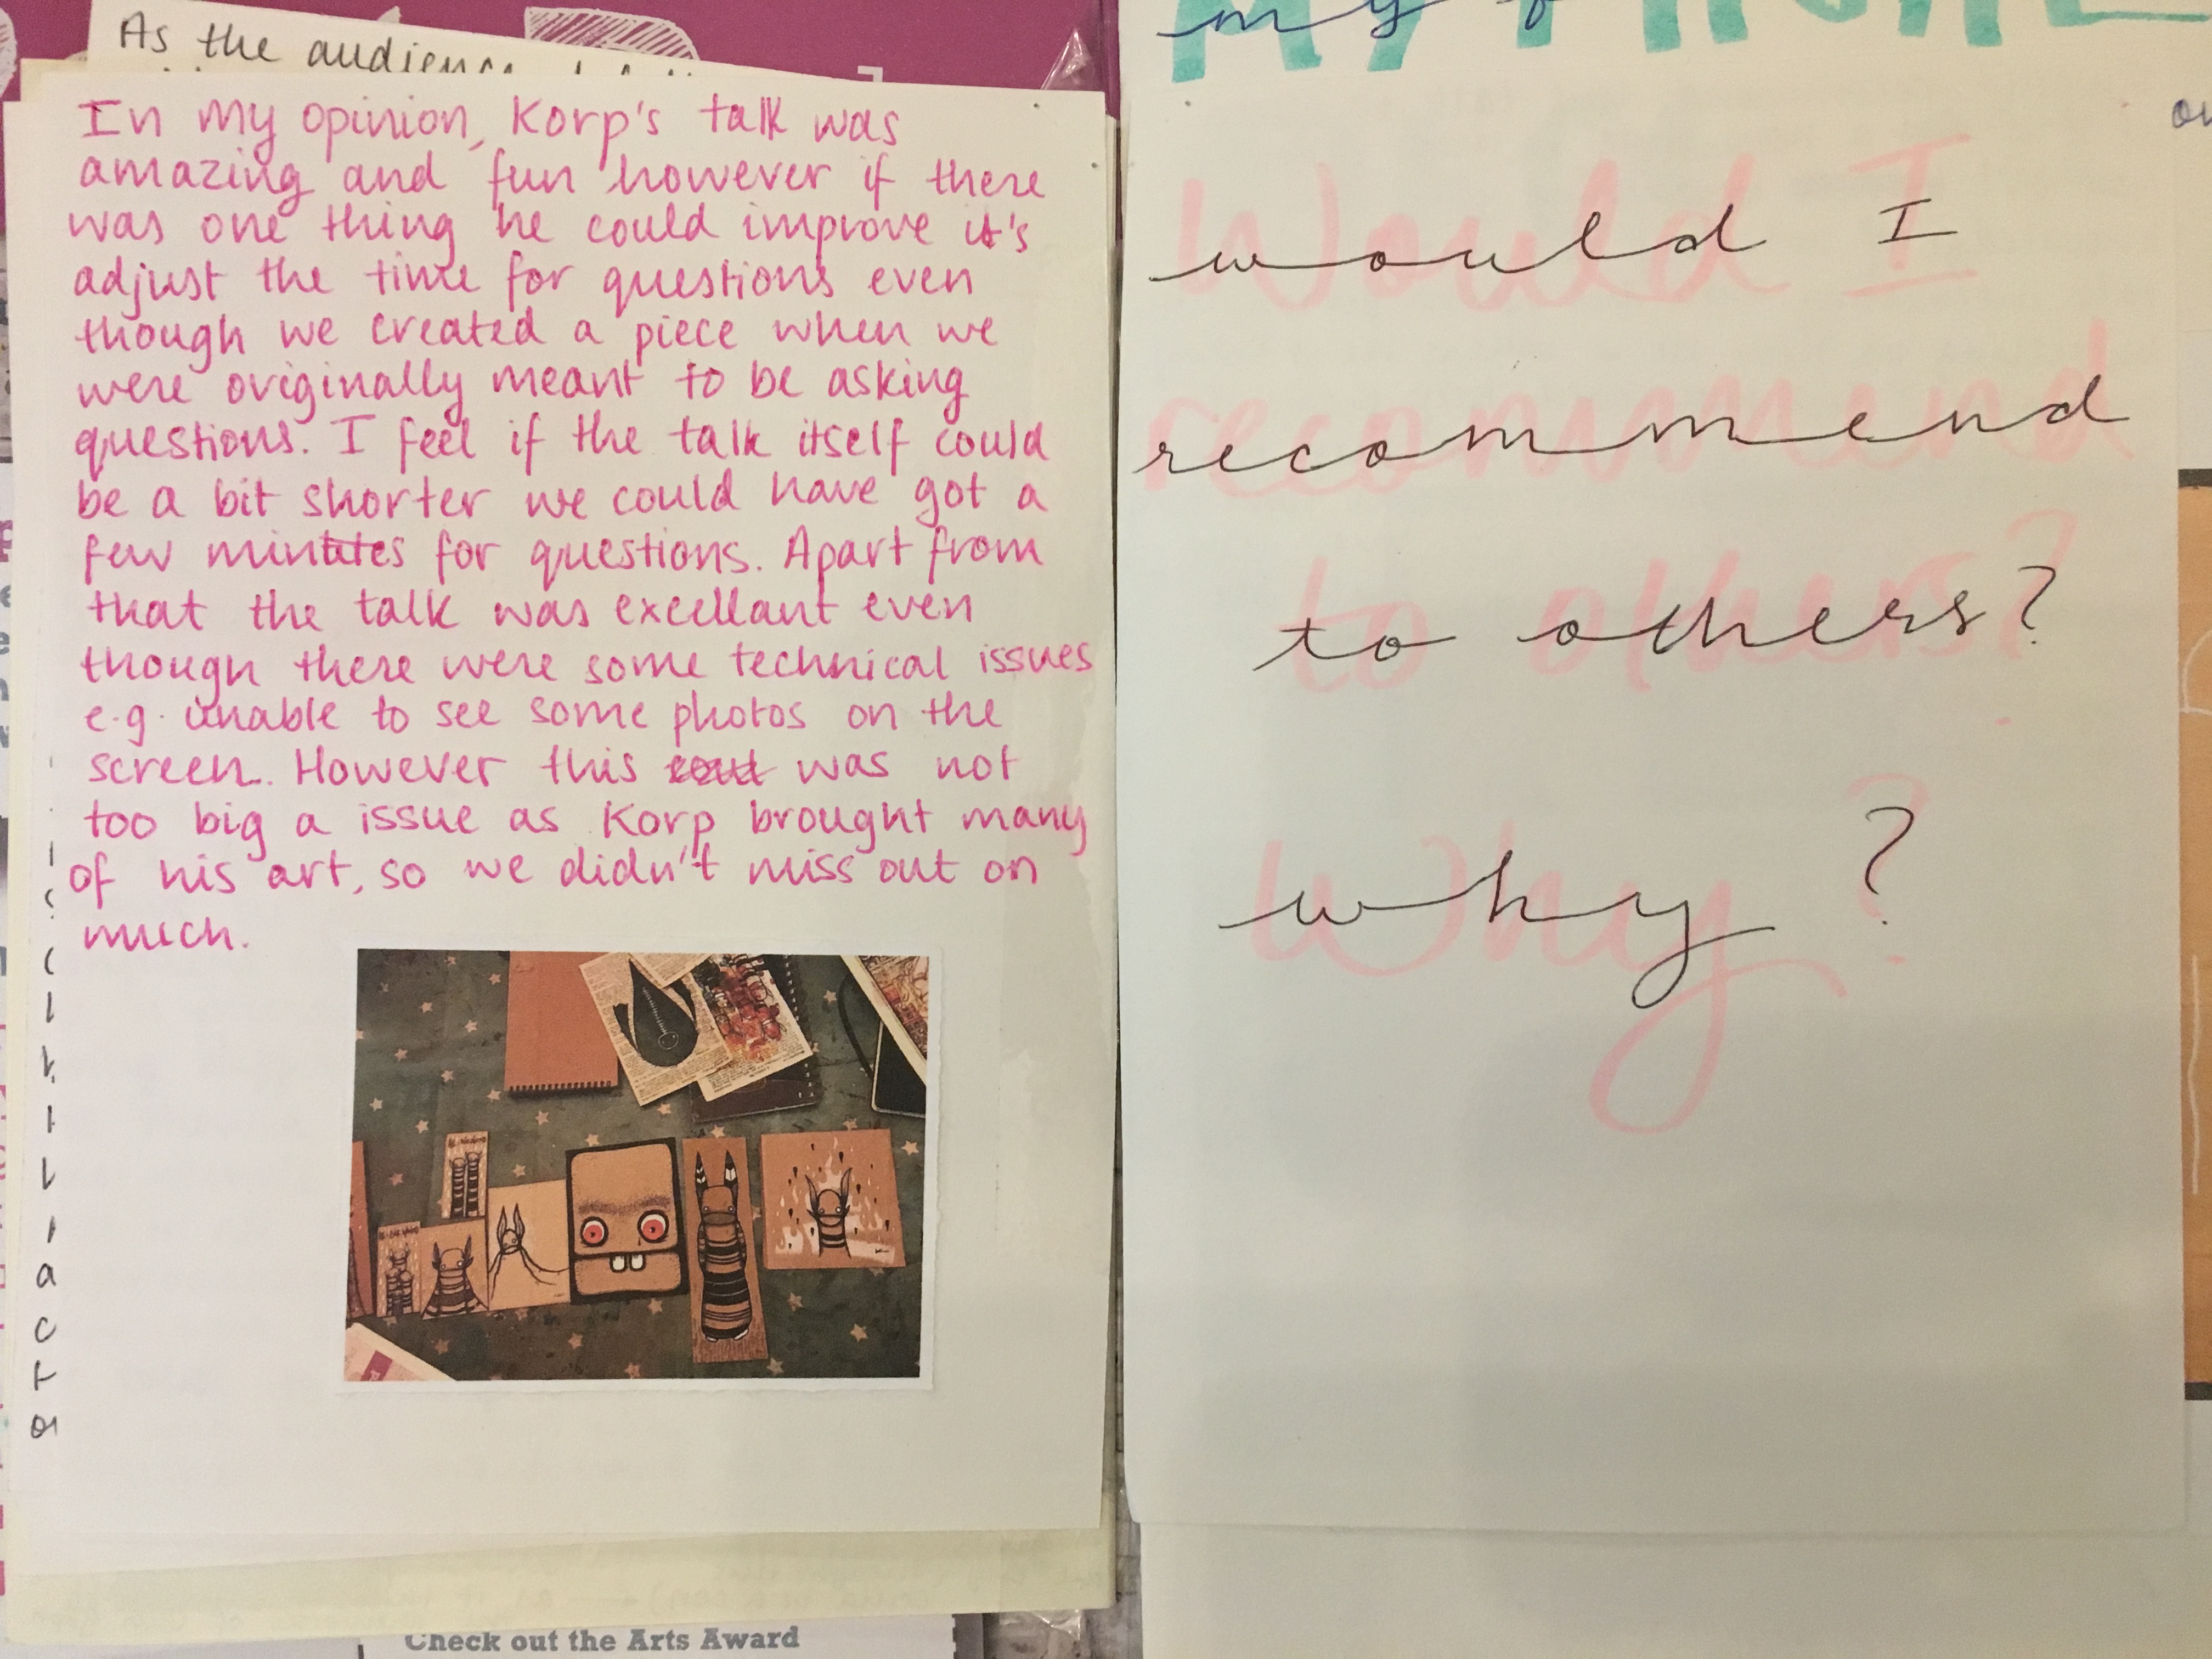 As the audience
In my opinion, Korp's talk was
amazing and fun however if there
was one thing he could improve it's
adjust the time for questions even
though we created a piece when we
were originally meant to be asking
questions. I feel if the talk itself could
be a bit shorter we could have got a
few minutes for questions. Apart from
that the talk was excellant even
though there were some technical issues
e.g. unable to see some photos on the
screen. However this was not
too big a issue as Korp brought many
of his art, so we didn't miss out on
much.
Check out the Arts Award
my
MY
would I
recommend
to others?
why?